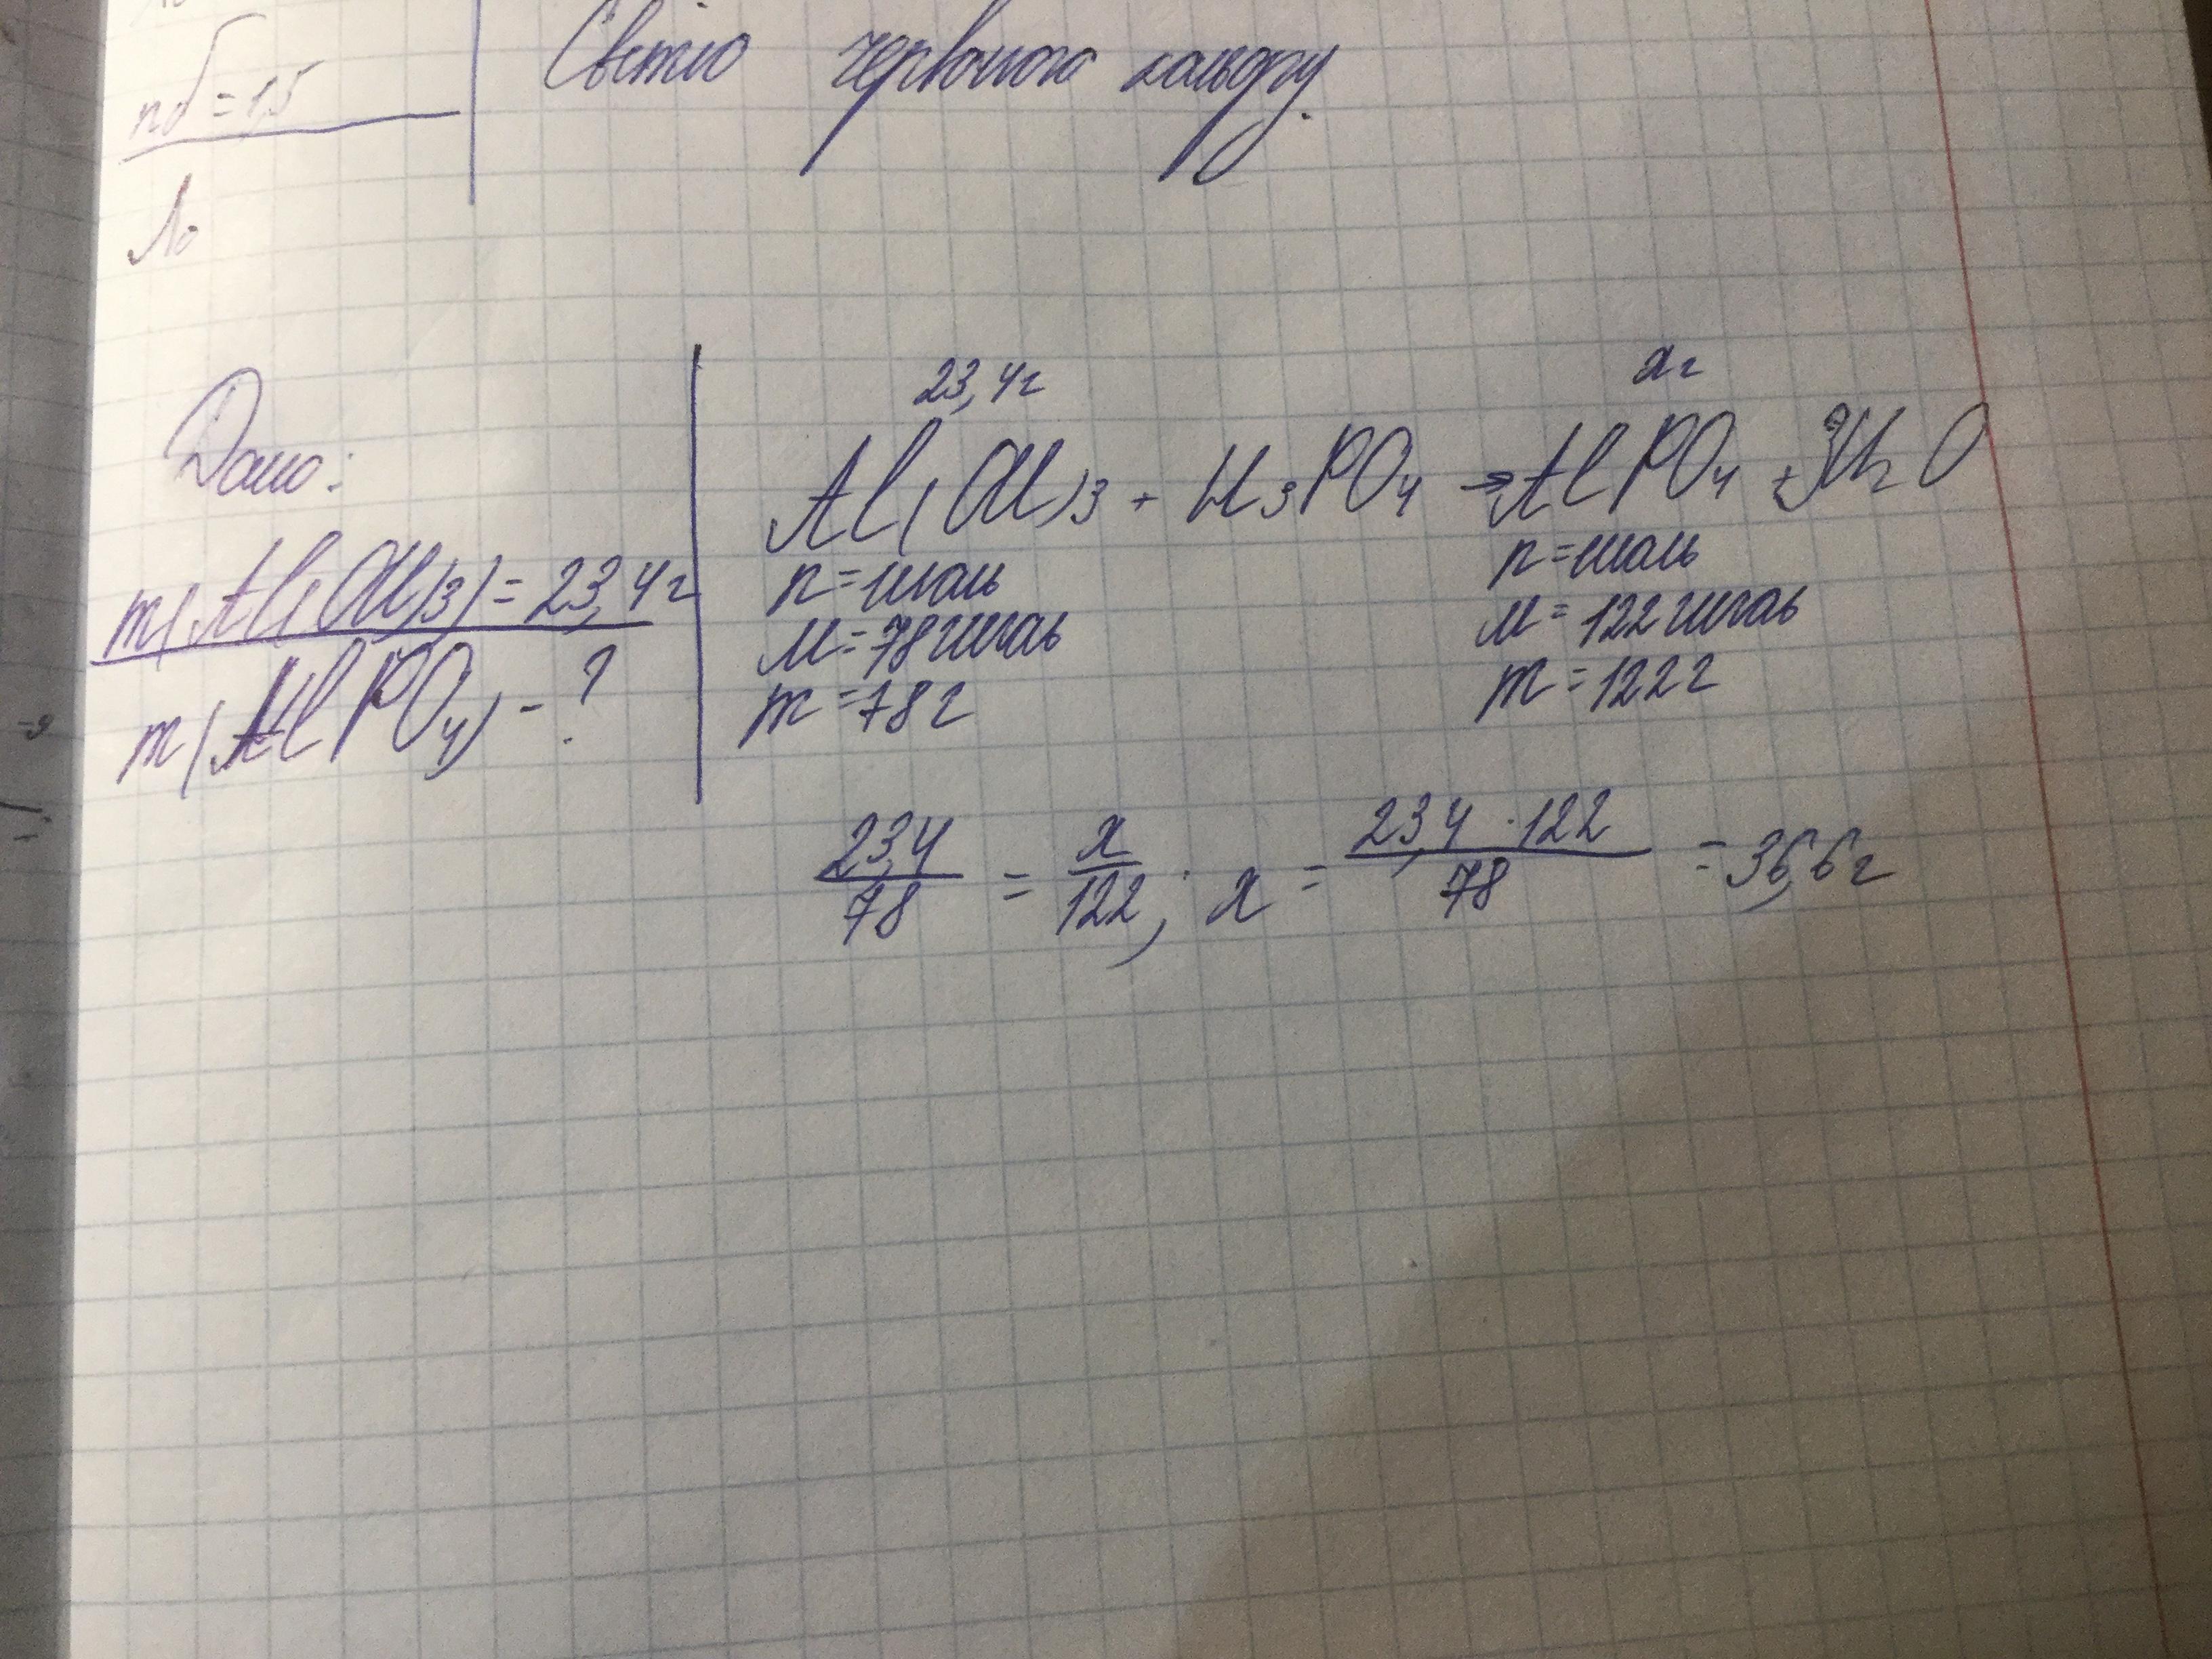 nδ = 1,5
Світло червоного кольору.
λ₀
Дано:
m(Al(OH)3) = 23,4г
m(AlPO4) - ?
23,4г xг
Al(OH)3 + H3PO4 → AlPO4 + 3H2O
n = 1моль n = 1моль
M = 78г/моль M = 122г/моль
m = 78г m = 122г
23,4/78 = x/122; x = 23,4 · 122/78 = 36,6г